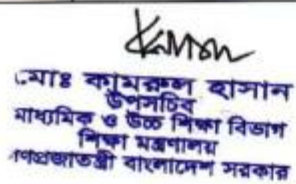 মোঃ কামরুল হাসান
উপসচিব
মাধ্যমিক ও উচ্চ শিক্ষা বিভাগ
শিক্ষা মন্ত্রণালয়
গণপ্রজাতন্ত্রী বাংলাদেশ সরকার